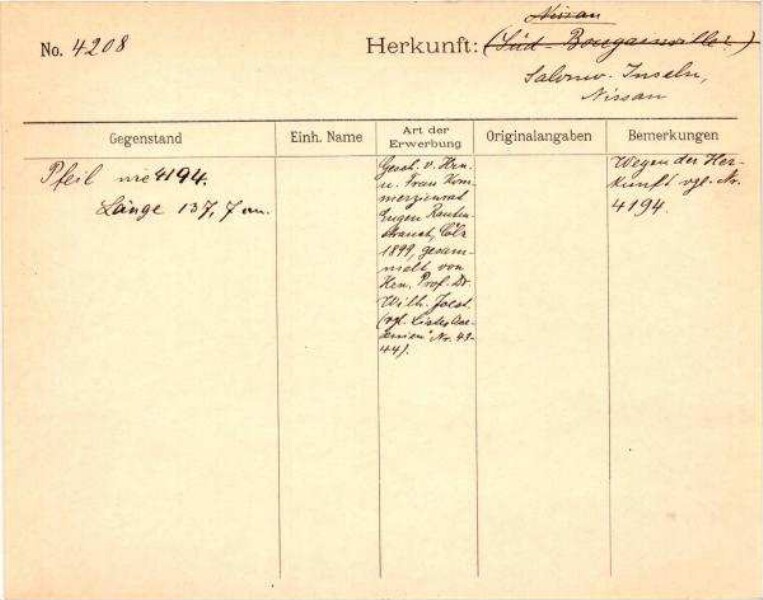 Nissan
No. 4208
Herkunft: (Süd-Bougainville.)
Salomo-Inseln,
Nissan
Gegenstand
Einh. Name
Art der
Erwerbung
Originalangaben
Bemerkungen
Pfeil wie 4194.
Länge 137,7 cm.
Gesch. v. Hrn.
u. Frau Kom-
merzienrat
Eugen Rauten-
strauch, Cöln
1899, gesam-
melt von
Hrn. Prof. Dr.
Wilh. Joest.
(vgl. Liste
Nr. 43-
44).
Wegen der Her-
kunft vgl. Nr.
4194.